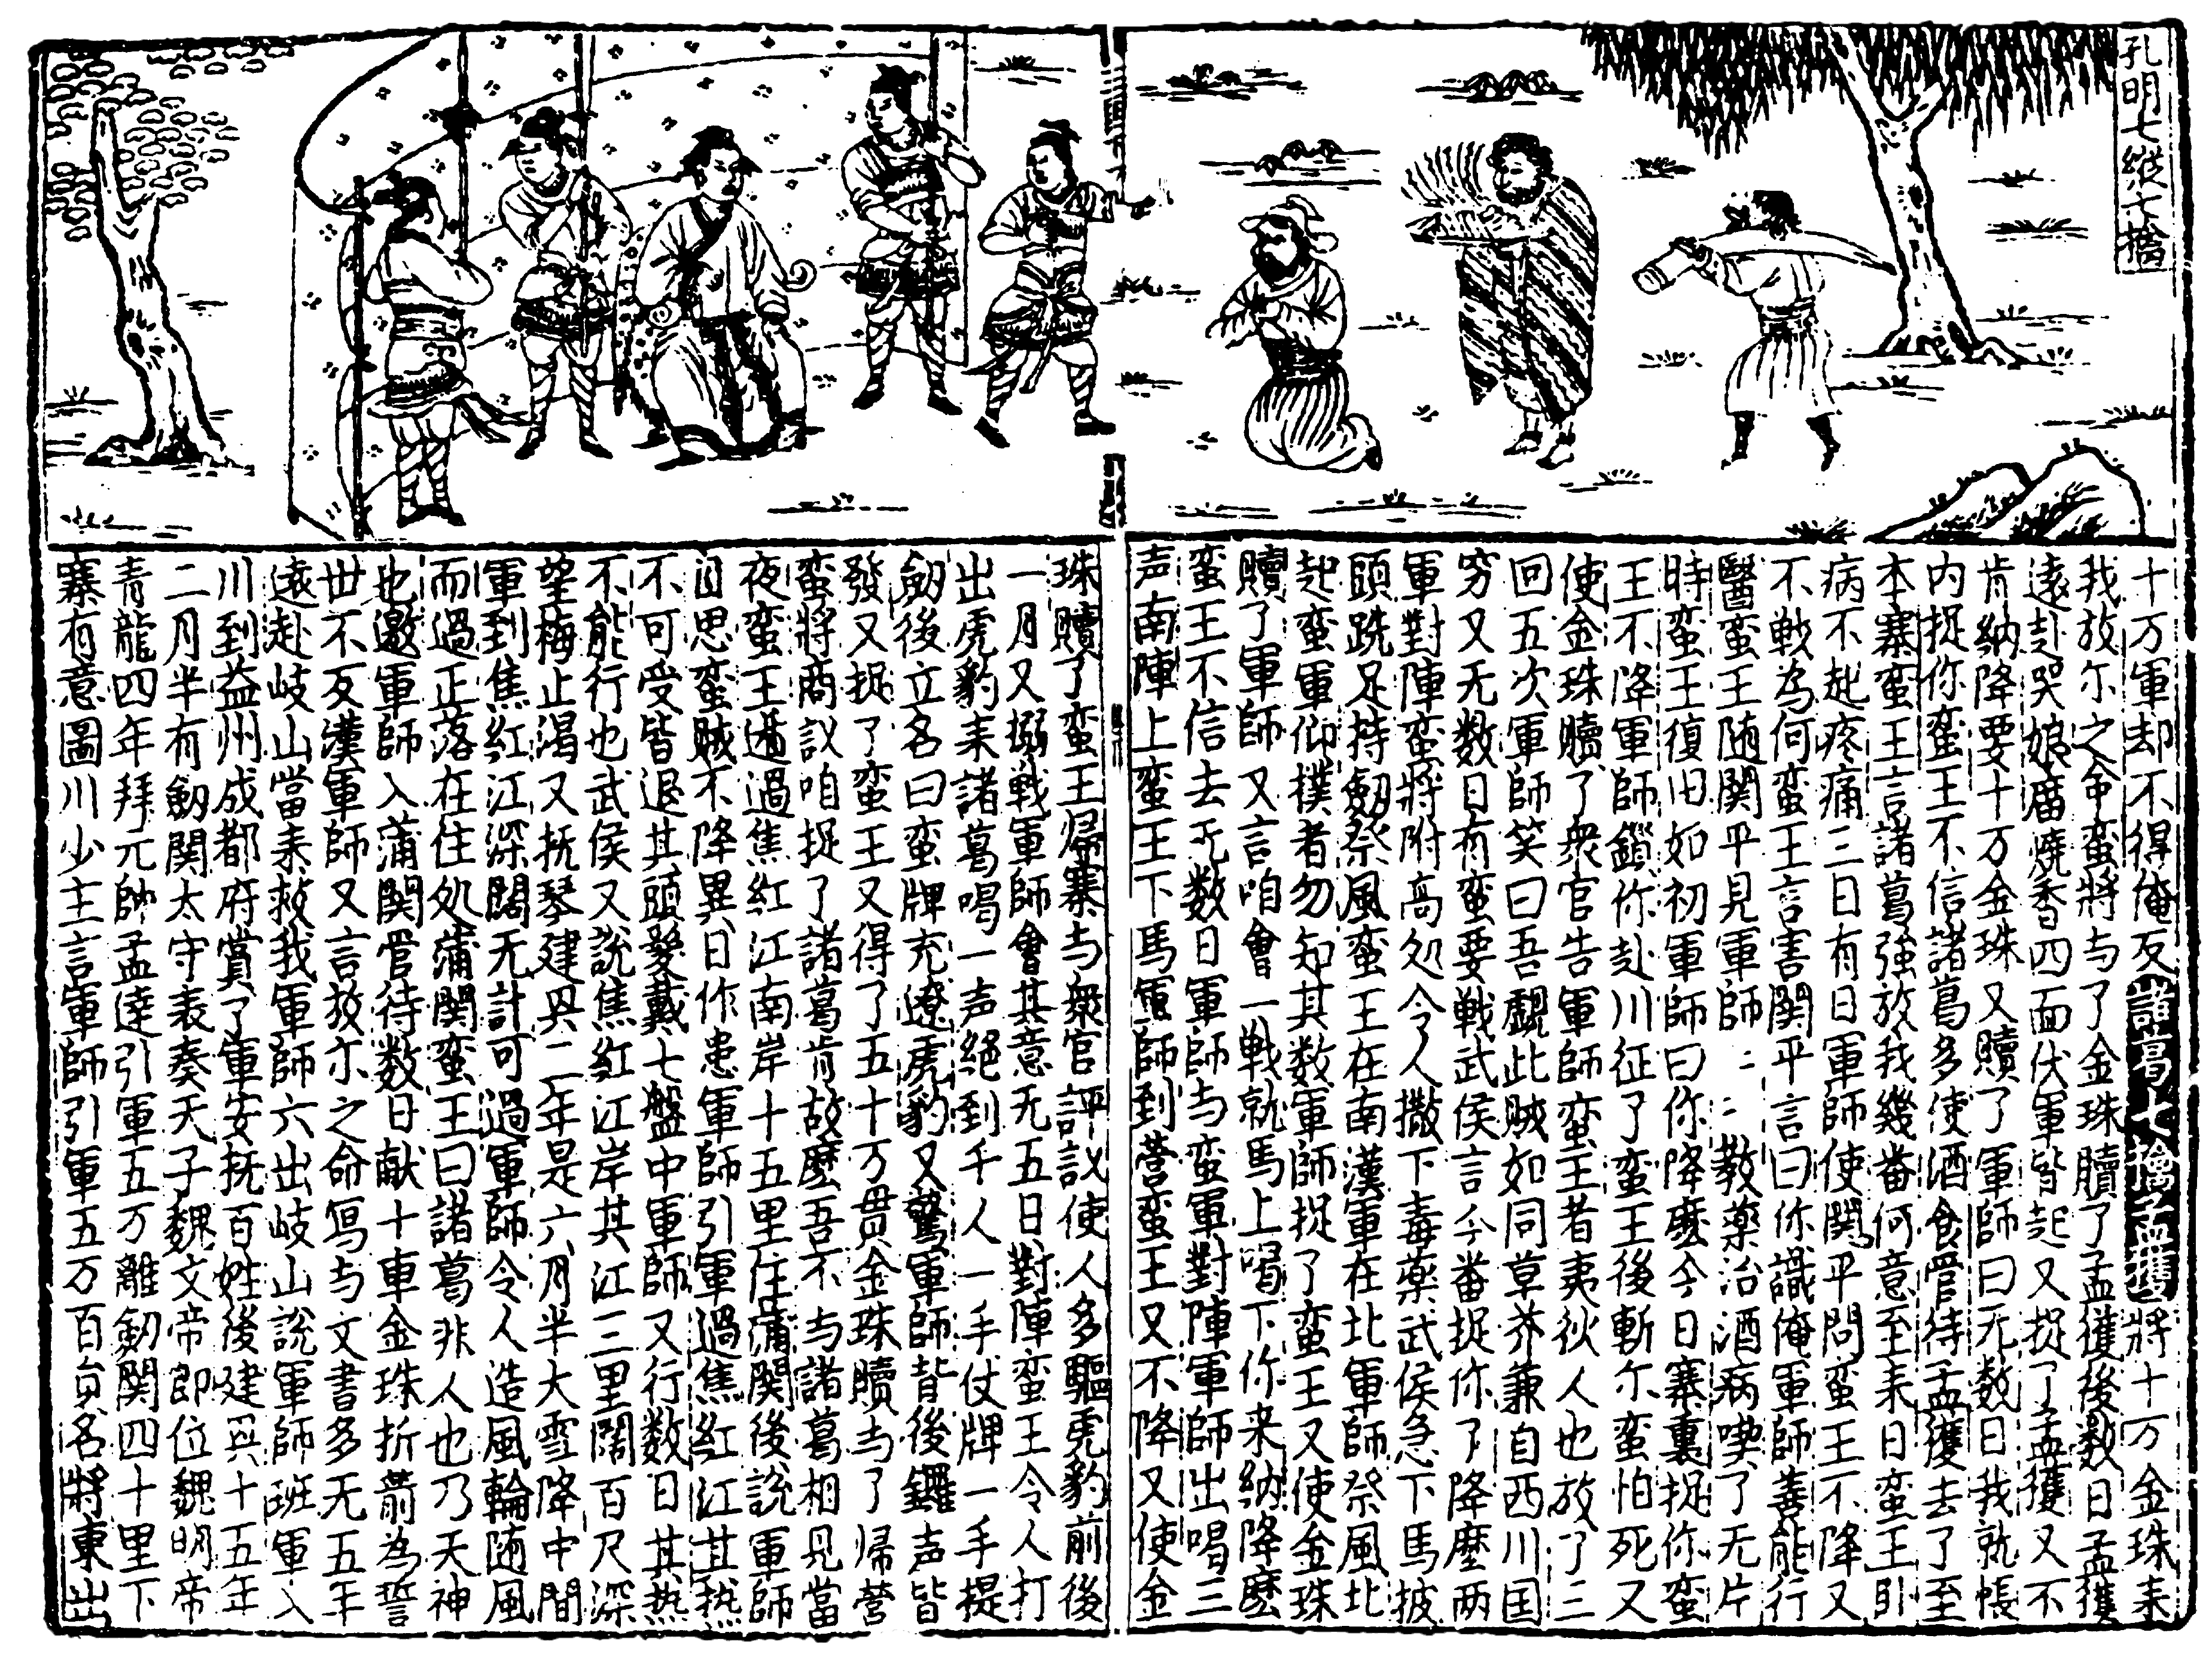 孔明七縱七擒
十万軍却不得俺反諸葛七擒孟獲將十万金珠耒
我放尔之命蛮將与了金珠贖了孟獲後数日孟獲
遠赴哭娘廟燒香四面伏軍皆起又捉了孟獲又不
肯納降要十万金珠又贖了軍師曰无数日我就帳
内捉你蛮王不信諸葛多使酒食管待孟獲去了至
本寨蛮王言諸葛強放我幾畨何意至耒日蛮王引
病不起疼痛三日有日軍師使関平問蛮王不降又
不戦為何蛮王言害関平言曰你識俺軍師善能行
醫蛮王随関平見軍師〻〻教藥治酒病喫了无片
時蛮王復旧如初軍師曰你降麽今日寨裏捉你蛮
王不降軍師鎖你赴川征了蛮王後斬尔蛮怕死又
使金珠贖了衆官告軍師蛮王者夷狄人也放了三
回五次軍師笑曰吾覷此贼如同草芥兼自西川国
穷又无数日有蛮要戦武侯言今畨捉你了降麽两
軍對陣蛮將附高处令人撒下毒藥武侯急下馬披
頭跣足持劔祭風蛮王在南漢軍在北軍師祭風北
起蛮軍仰撲者勿知其数軍師捉了蛮王又使金珠
贖了軍師又言咱會一戦就馬上喝下你来納降麽
蛮王不信去无数日軍師与蛮軍對陣軍師出喝三
声南陣上蛮王下馬軍師到营蛮王又不降又使金
珠贖了蛮王帰寨与衆官評議使人多驅虎豹前後
一月又搦戦軍師會其意无五日對陣蛮王令人打
出虎豹耒諸葛喝一声絕到千人一手仗牌一手提
劔後立名曰蛮牌充遼虎豹又驚軍師背後鑼声皆
發又捉了蛮王又得了五十万贯金珠贖与了帰营
蛮將商议咱捉了諸葛肯放麽吾不与諸葛相見當
夜蛮王過過焦紅江南岸十五里住蒲関後説軍師
自思蛮贼不降異日作患軍師引軍過焦紅江其热
不可受皆退其頭髪戴七盤中軍師又行数日其热
不能行也武侯又說焦紅江岸其江三里闊百尺深
望梅止渴又抚琴建兴二年是六月半大雪降中間
軍到焦紅江深闊无計可過軍師令人造風輪随風
而過正落在住处蒲関蛮王曰諸葛非人也乃天神
也邀軍師入蒲関管待数日献十車金珠折箭為誓
世不反漢軍師又言放尔之命冩与文書多无五年
遠赴岐山當耒救我軍師六出岐山說軍師班軍入
川到益州成都府賞了軍安抚百姓後建兴十五年
二月半有劔関太守表奏天子魏文帝即位魏明帝
青龍四年拜元帥孟達引軍五万離劔関四十里下
寨有意圖川少主言軍師引軍五万百員名將東出